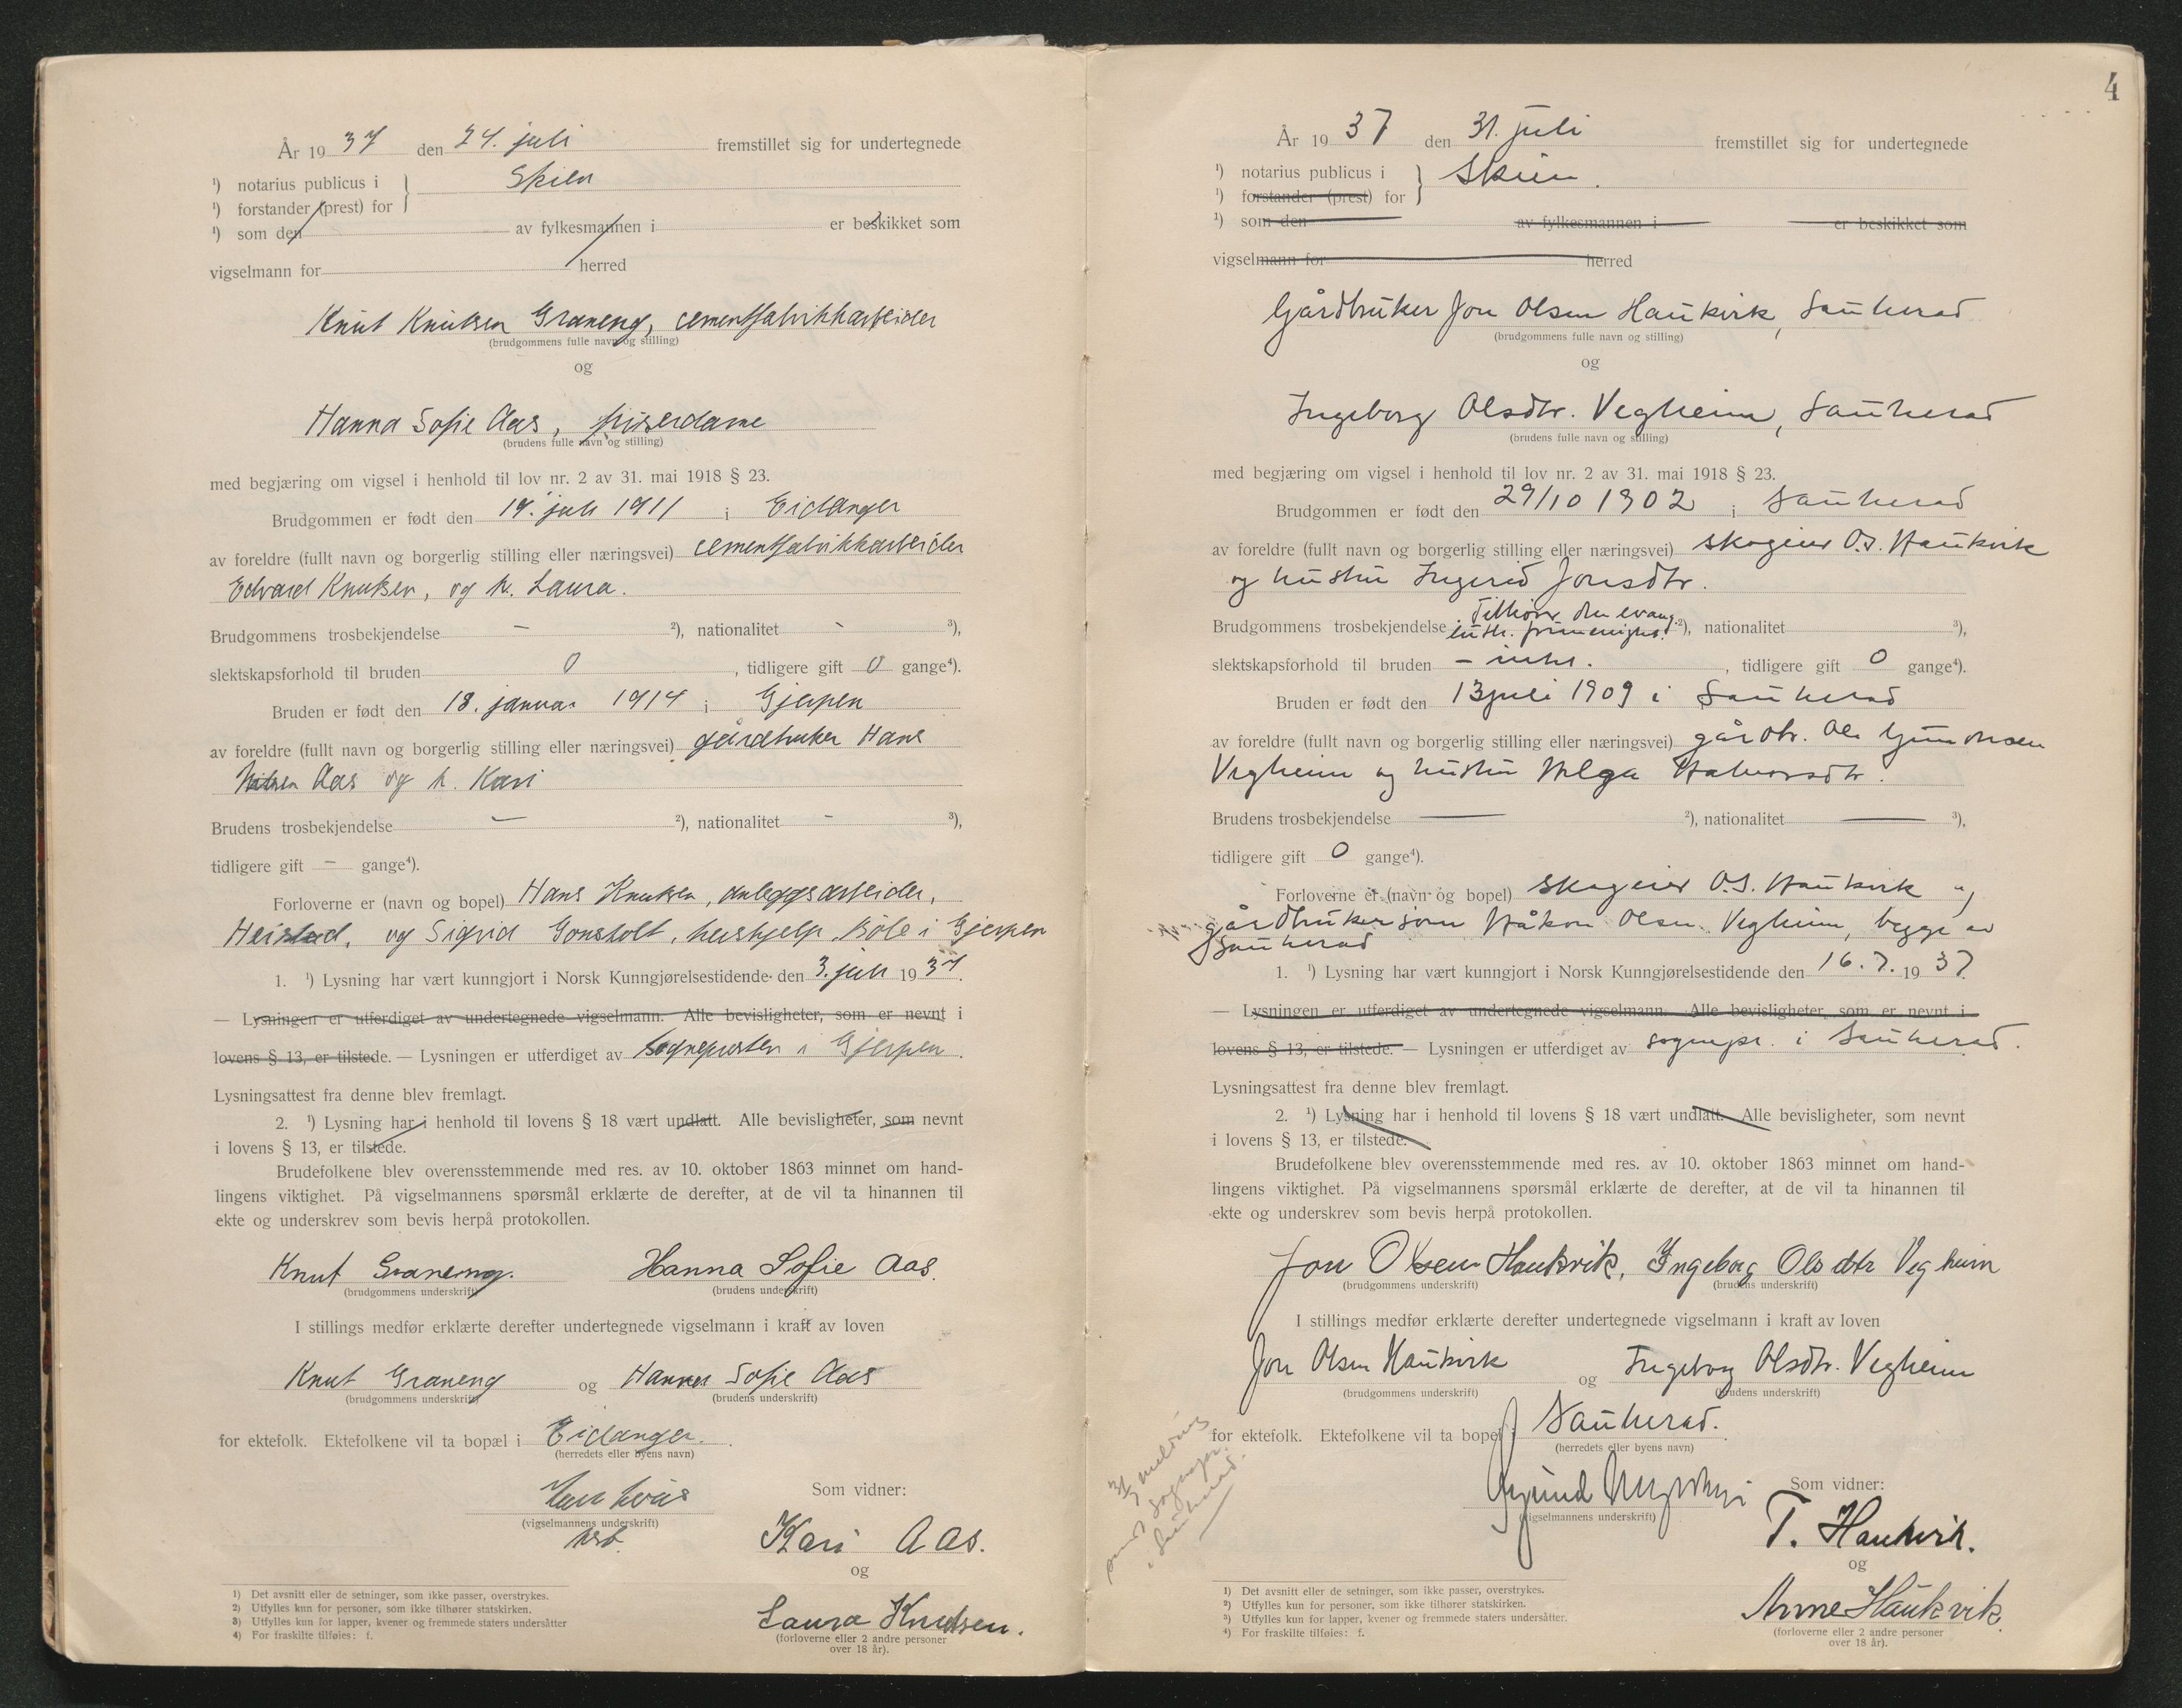 År 19 37 den 24. juli fremstillet sig for undertegnede
¹) notarius publicus i } Skien
¹) forstander (prest) for
¹) som den av fylkesmannen i er beskikket som
vigselmann for herred
Knut Knutsen Graneng, cementfabrikkarbeider
(brudgommens fulle navn og stilling)
og
Hanna Sofie Aas, friserdame
(brudens fulle navn og stilling)
med begjæring om vigsel i henhold til lov nr. 2 av 31. mai 1918 § 23.
Brudgommen er født den 19. juli 1911 i Eidanger
av foreldre (fullt navn og borgerlig stilling eller næringsvei) cementfabrikkarbeider
Edvard Knutsen, og h. Laura.
Brudgommens trosbekjendelse - ²), nationalitet - ³),
slektskapsforhold til bruden 0, tidligere gift 0 gange⁴).
Bruden er født den 18. januar 1914 i Gjerpen
av foreldre (fullt navn og borgerlig stilling eller næringsvei) gårdbruker Hans
Aas og h. Kari
Brudens trosbekjendelse - ²), nationalitet - ³),
tidligere gift - gange⁴).
Forloverne er (navn og bopel) Hans Knutsen, anleggsarbeider,
Heistad, og Sigrid Gonsholt, hushjelp, Böle i Gjerpen
1. ¹) Lysning har vært kunngjort i Norsk Kunngjørelsestidende den 3. juli 1937.
— Lysningen er utferdiget av undertegnede vigselmann. Alle bevisligheter, som er nevnt i
lovens § 13, er tilstede. — Lysningen er utferdiget av sogneprsten i Gjerpen.
Lysningsattest fra denne blev fremlagt.
2. ¹) Lysning har i henhold til lovens § 18 vært undlatt. Alle bevisligheter, som nevnt
i lovens § 13, er tilstede.
Brudefolkene blev overensstemmende med res. av 10. oktober 1863 minnet om hand-
lingens viktighet. På vigselmannens spørsmål erklærte de derefter, at de vil ta hinannen til
ekte og underskrev som bevis herpå protokollen.
Knut Graneng. Hanna Sofie Aas.
(brudgommens underskrift) (brudens underskrift)
I stillings medfør erklærte derefter undertegnede vigselmann i kraft av loven
Knut Graneng og Hanna Sofie Aas
(brudgommens underskrift) (brudens underskrift)
for ektefolk. Ektefolkene vil ta bopæl i Eidanger.
(herredets eller byens navn)
Som vidner:
(vigselmannens underskrift)
Kari Aas.
og
Laura Knudsen.
(forloverne eller 2 andre personer
over 18 år).
1) Det avsnitt eller de setninger, som ikke passer, overstrykes.
2) Utfylles kun for personer, som ikke tilhører statskirken.
3) Utfylles kun for lapper, kvener og fremmede staters undersåtter
4) For fraskilte tilføies: f.
4
År 19 37 den 31. juli fremstillet sig for undertegnede
¹) notarius publicus i } Skien.
¹) forstander (prest) for
¹) som den av fylkesmannen i er beskikket som
vigselmann for herred
Gårdbruker Jon Olsen Haukvik, Sauherad
(brudgommens fulle navn og stilling)
og
Ingeborg Olsdtr. Vegheim, Sauherad
(brudens fulle navn og stilling)
med begjæring om vigsel i henhold til lov nr. 2 av 31. mai 1918 § 23.
Brudgommen er født den 29/10 1902 i Sauherad
av foreldre (fullt navn og borgerlig stilling eller næringsvei) skogeier O.J. Haukvik
og hustru Ingerid Jonsdtr.
Brudgommens trosbekjendelse Tilhører den evang. luth. frimenighet. ²), nationalitet ³),
slektskapsforhold til bruden - intet., tidligere gift 0 gange⁴).
Bruden er født den 13 juli 1909 i Sauherad
av foreldre (fullt navn og borgerlig stilling eller næringsvei) gårdbr. Ole Gundersen
Vegheim og hustru Helga Halvorsdtr.
Brudens trosbekjendelse — ²), nationalitet — ³),
tidligere gift 0 gange⁴).
Forloverne er (navn og bopel) skogeier O.J. Haukvik og
gårdbruker sønn Håkon Olsen Vegheim, begge av
Sauherad
1. ¹) Lysning har vært kunngjort i Norsk Kunngjørelsestidende den 16. 7. 1937.
— Lysningen er utferdiget av undertegnede vigselmann. Alle bevisligheter, som er nevnt i
lovens § 13, er tilstede. — Lysningen er utferdiget av sognepr. i Sauherad.
Lysningsattest fra denne blev fremlagt.
2. ¹) Lysning har i henhold til lovens § 18 vært undlatt. Alle bevisligheter, som nevnt
i lovens § 13, er tilstede.
Brudefolkene blev overensstemmende med res. av 10. oktober 1863 minnet om hand-
lingens viktighet. På vigselmannens spørsmål erklærte de derefter, at de vil ta hinannen til
ekte og underskrev som bevis herpå protokollen.
Jon Olsen Haukvik, Ingeborg Olsdtr Vegheim
(brudgommens underskrift) (brudens underskrift)
I stillings medfør erklærte derefter undertegnede vigselmann i kraft av loven
Jon Olsen Haukvik og Ingeborg Olsdtr. Vegheim
(brudgommens underskrift) (brudens underskrift)
for ektefolk. Ektefolkene vil ta bopel i Sauherad.
(herredets eller byens navn)
Som vidner:
(vigselmannens underskrift)
T. Haukvik.
og
Anne Haukvik.
(forloverne eller 2 andre personer
over 18 år).
sendt sognepr.
i Sauherad.
1) Det avsnitt eller de setninger, som ikke passer, overstrykes.
2) Utfylles kun for personer, som ikke tilhører statskirken.
3) Utfylles kun for lapper, kvener og fremmede staters undersåtter.
4) For fraskilte tilføies: f.